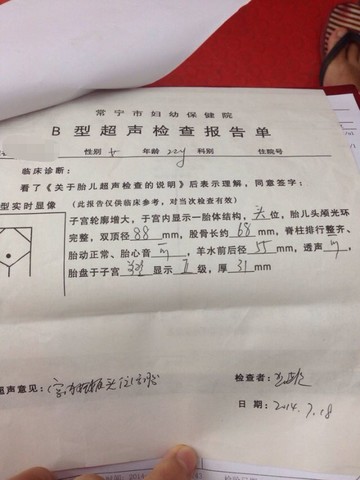 常宁市妇幼保健院
B型超声检查报告单
性别 女 年龄 22y 科别 住院号
临床诊断:
看了《关于胎儿超声检查的说明》后表示理解,同意签字:
型实时显像 (此报告仅供临床参考,对当次检查有效)
子宫轮廓增大,子宫内显示一胎体结构,头位,胎儿头颅光环
完整,双顶径88mm,股骨长约68mm,脊柱排行整齐、
胎动正常、胎心音可,羊水前后径55mm,透声可,
胎盘于子宫 显示II级,厚31mm
超声意见: 宫内 头位
检查者:
日期: 2014.7.18